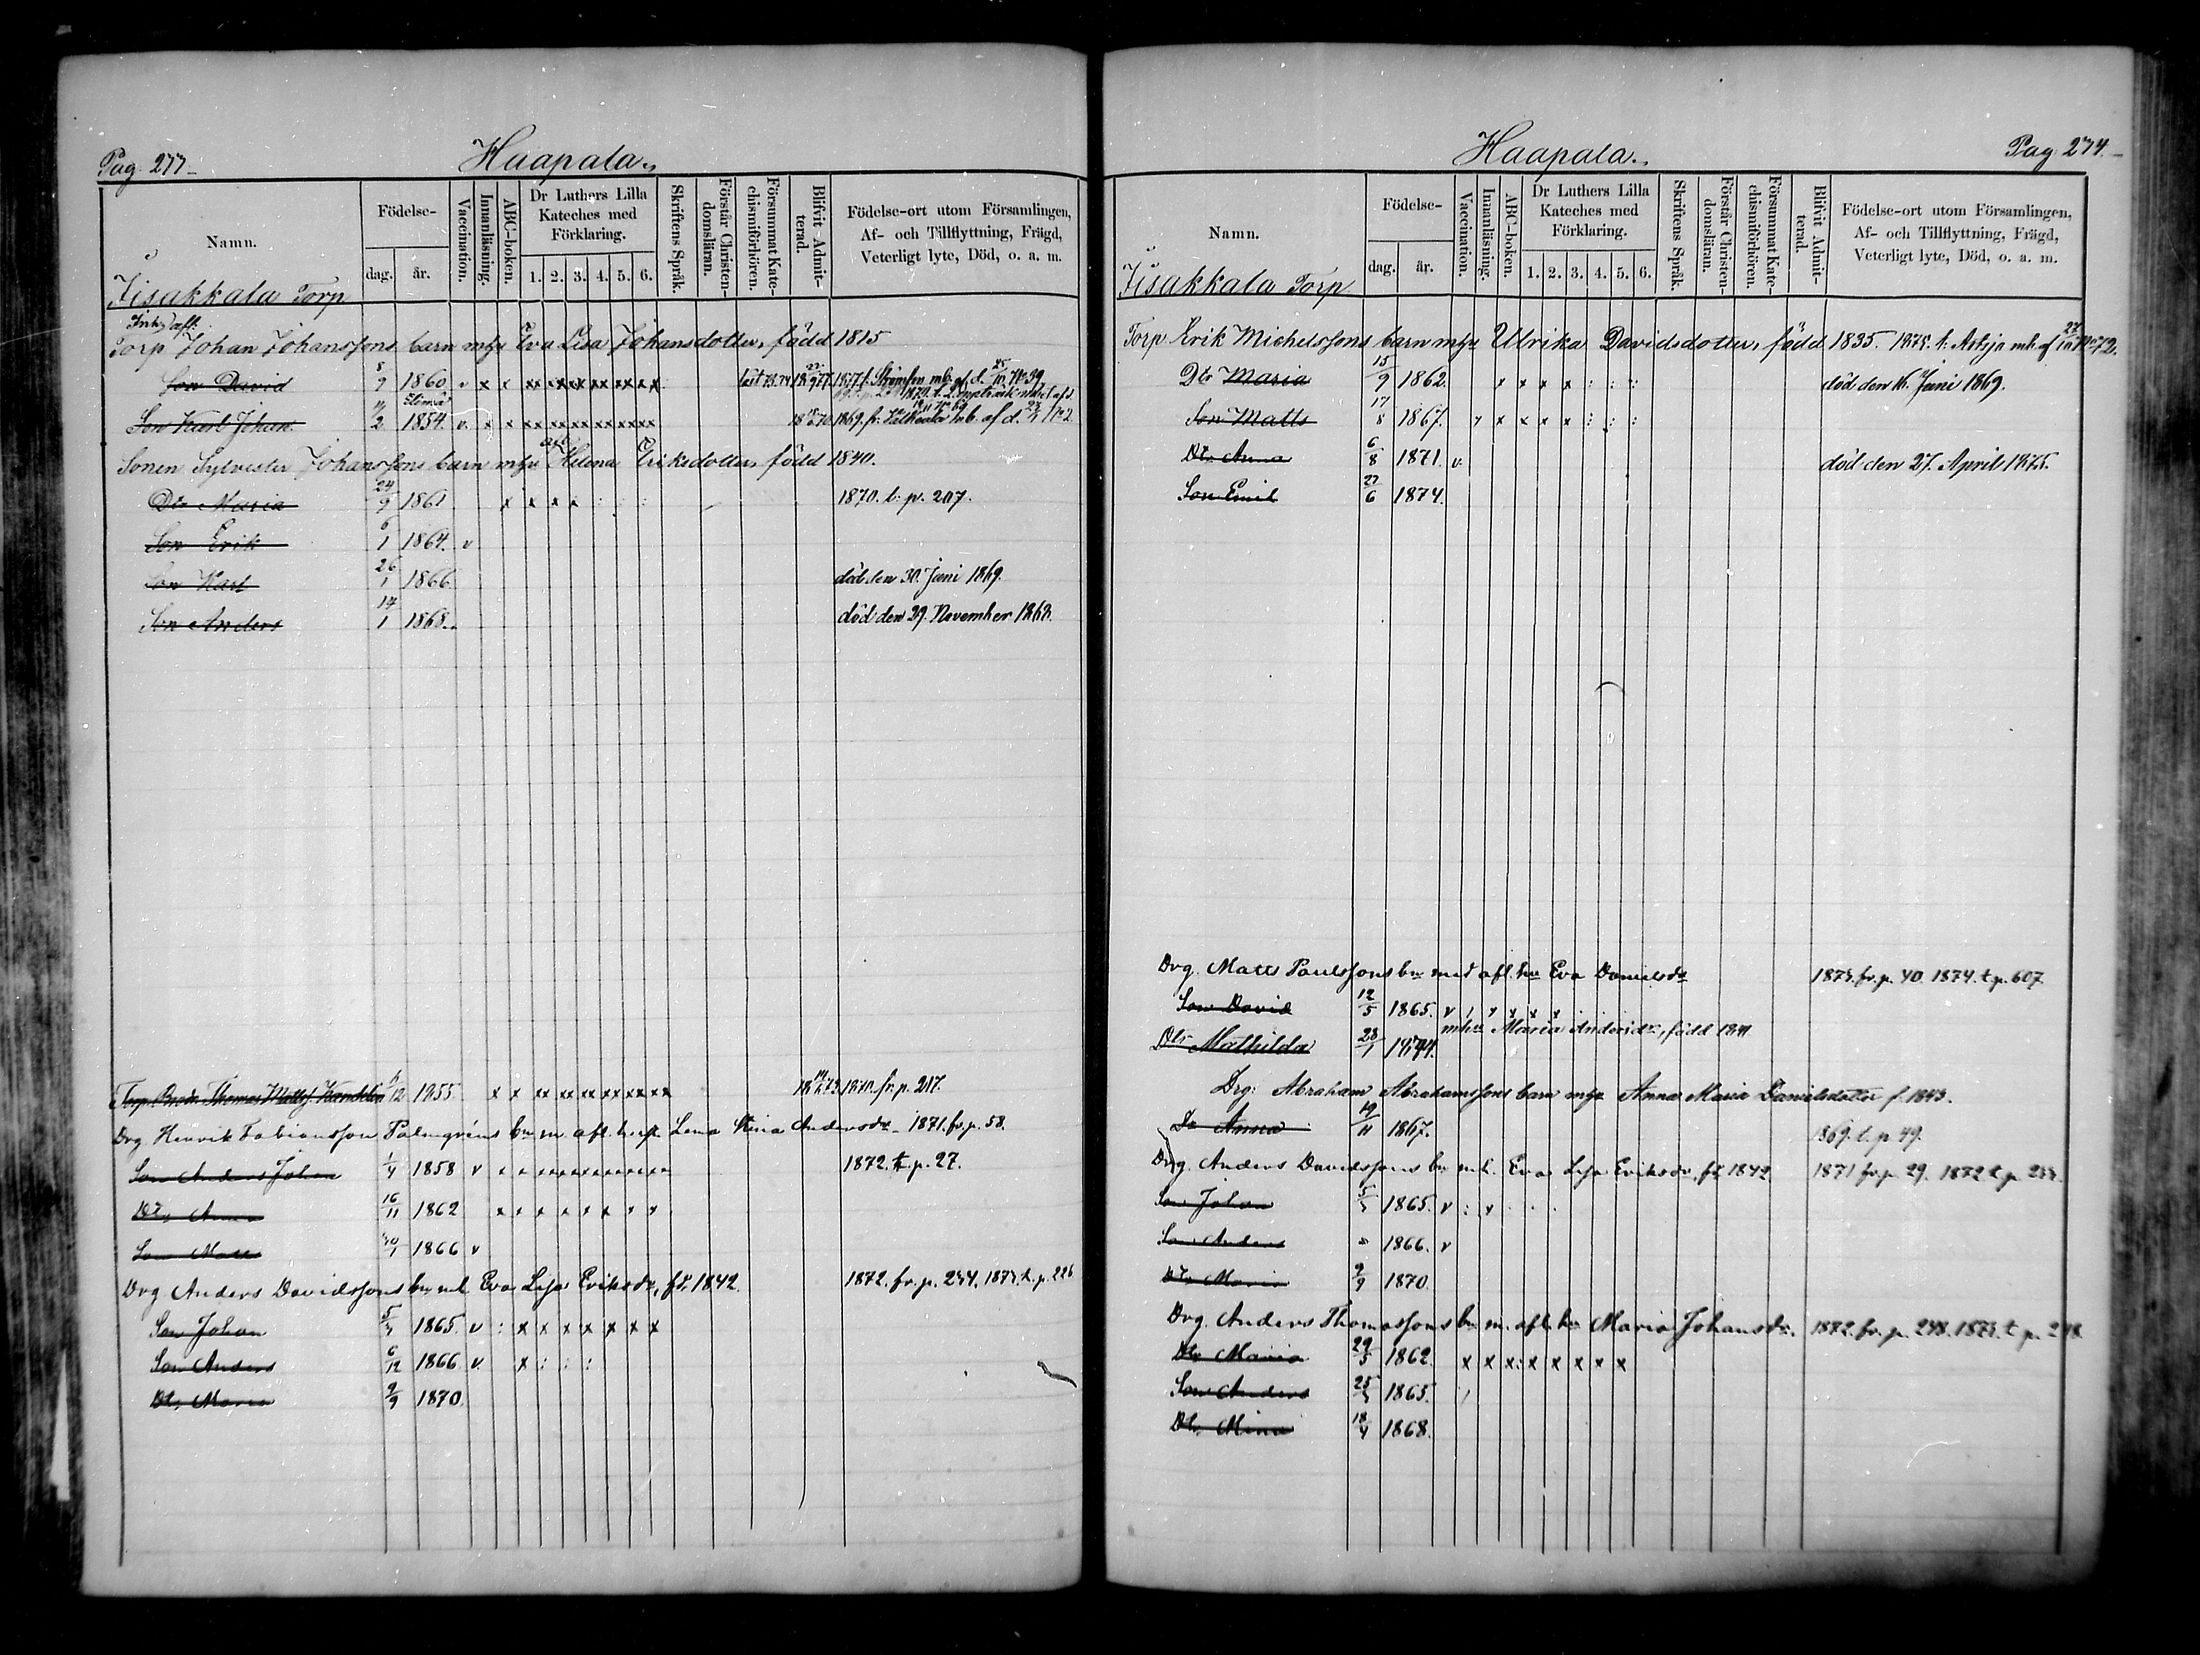 Pag. 277
Haapala.
Namn.
Födelse-
dag.
år.
Vaccination.
Innanläsning.
ABC-boken.
Dr Luthers Lilla
Kateches med
Förklaring.
1. 2. 3. 4. 5. 6.
Skriftens Språk.
Förstår Christen-
domsläran.
Försummat Kate-
chismiförhören.
Blifvit Admit-
terad.
Födelse-ort utom Församlingen,
Af- och Tillflyttning, Frägd,
Veterligt lyte, Död, o. a. m.
Iisakkala Torp
Torp Johan Johanssons barn mhu Eva Lisa Johansdotter, född 1815
Son David 8/9 1860. v x x
Elimä
Son Karl Johan 11/2 1854. v. x x
Sonen Sylvester Johanssons barn mhu Helena Eriksdotter, född 1840.
Dtr Maria 24/9 1861 x x x x : 1870. t. p. 207.
Son Erik 6/1 1864. v
Son Karl 26/1 1866. död den 30. Juni 1869.
Son Anders 17/1 1868. död den 29. November 1868.
Torp. Thomas Matts. 6/12 1855 x x xx xx xx xx xx xx 1870. fr. p. 217.
Drg. Henrik Fabiansson Palmgréns bn m. afl. hu Lena Stina Andersdr 1871. fr. p. 58.
Son Anders Johan 1/4 1858 v x x 1872. t. p. 27.
Dtr Anna 16/11 1862 x x x x x x x x
Son Matts 30/1 1866 v
Drg Anders Davidssons bn m h. Eva Lisa Eriksdr, f. 1842. 1872. fr. p. 274. 1873. t. p. 226
Son Johan 5/3 1865. v : x x x x x x x
Son Anders 6/12 1866 v. x : : :
Dtr Maria 9/9 1870.
Haapala.
Pag. 274.
Namn.
Födelse-
dag.
år.
Vaccination.
Innanläsning.
ABC-boken.
Dr Luthers Lilla
Kateches med
Förklaring.
1. 2. 3. 4. 5. 6.
Skriftens Språk.
Förstår Christen-
domsläran.
Försummat Kate-
chismiförhören.
Blifvit Admit-
terad.
Födelse-ort utom Församlingen,
Af- och Tillflyttning, Frägd,
Veterligt lyte, Död, o. a. m.
Iisakkala Torp
Torp Erik Michelssons barn mhu Ulrika Davidsdotter, född 1835. 1875. t. Artsjö mb. af
Dtr Maria 15/9 1862. x x x x : : : död den 16. Juni 1869.
Son Matts 17/8 1867. v x x x x : : :
Dtr Anna 6/8 1871. v. död den 27. April 1875.
Son Emil 27/6 1874.
Drg. Matts Paulssons bn med afl. hu Eva Danielsdr 1873. fr. p. 40. 1874. t. p. 607.
Son David 12/5 1865. v
mhu Maria Andersdr, född 1841
Dtr Mathilda 28/1 1874.
Drg: Abraham Abrahamssons barn mhu Anna Maria Danielsdotter f. 1843.
Dr Anna 19/11 1867. 1869. t. p. 49.
Drg. Anders Davidssons bn m h. Eva Lisa Eriksdr, f. 1842. 1871 fr. p. 29. 1872 t. p.
Son Johan 5/3 1865. v : x
Son Anders 1866. v
Dtr Maria 9/9 1870.
Drg. Anders Thomassons bn m. afl. hu Maria Johansdr. 1872. fr. p. 248. 1873. t. p. 248
Dtr Maria 29/5 1862. x x x: x x x x x
Son Anders 25/3 1865.
Dtr Mina 18/4 1868.